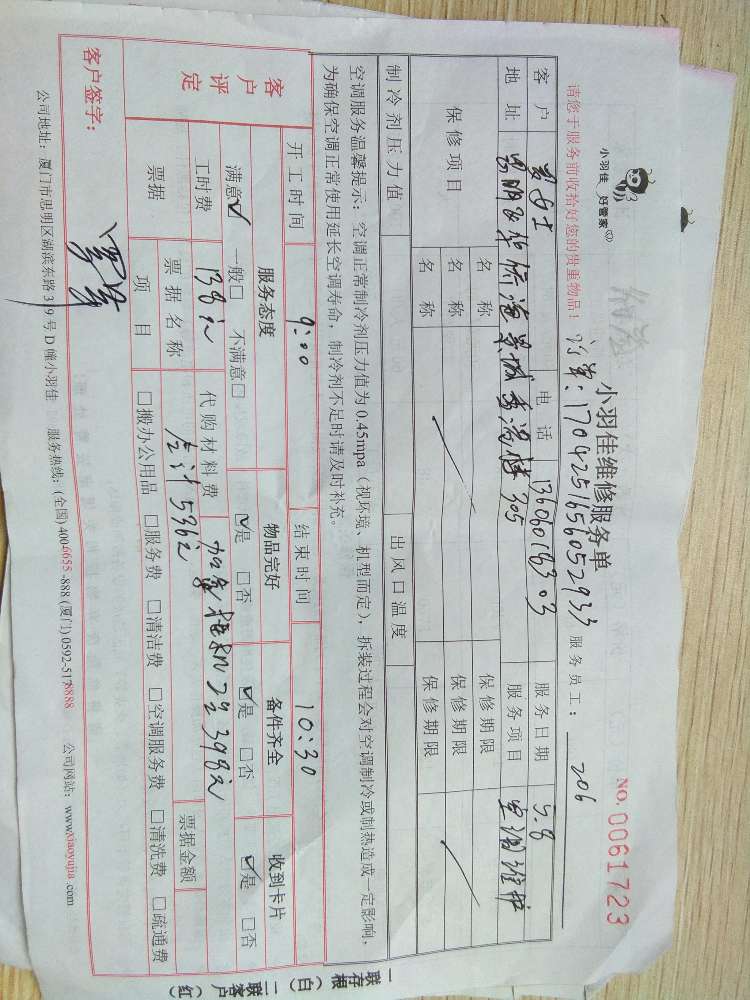 小羽佳 好管家
小羽佳维修服务单
NO. 0061723
请您于服务前收拾好您的贵重物品!
订单: 1704251656052933 服务员工: 206
客户 女士 电话 13606018303 服务日期 5.8
地址 思明区华侨海景城香海楼305 服务项目 空调维护
保修项目 名称 保修期限
名称 保修期限
名称 保修期限
制冷剂压力值 出风口温度
空调服务温馨提示: 空调正常制冷剂压力值为0.45mpa (视环境、机型而定), 拆装过程会对空调制冷或制热造成一定影响,
为确保空调正常使用延长空调寿命, 制冷剂不足时请及时补充。
开工时间 9:00 结束时间 10:30
客户评定 服务态度 物品完好 备件齐全 收到卡片
满意☑ 一般□ 不满意□ ☑是 □否 ☑是 □否 ☑是 □否
工时费 138元 代购材料费 398元
合计536元
票据 票据名称 票据金额
项目 □搬办公用品 □服务费 □清洁费 □空调服务费 □清洗费 □疏通费
客户签字:
公司地址: 厦门市思明区湖滨东路319号D幢小羽佳 服务热线: (全国) 400-6655-888 (厦门) 0592-5178888 公司网站: www.xiaoyujia.com
一联存根 (白) 二联客户 (红)